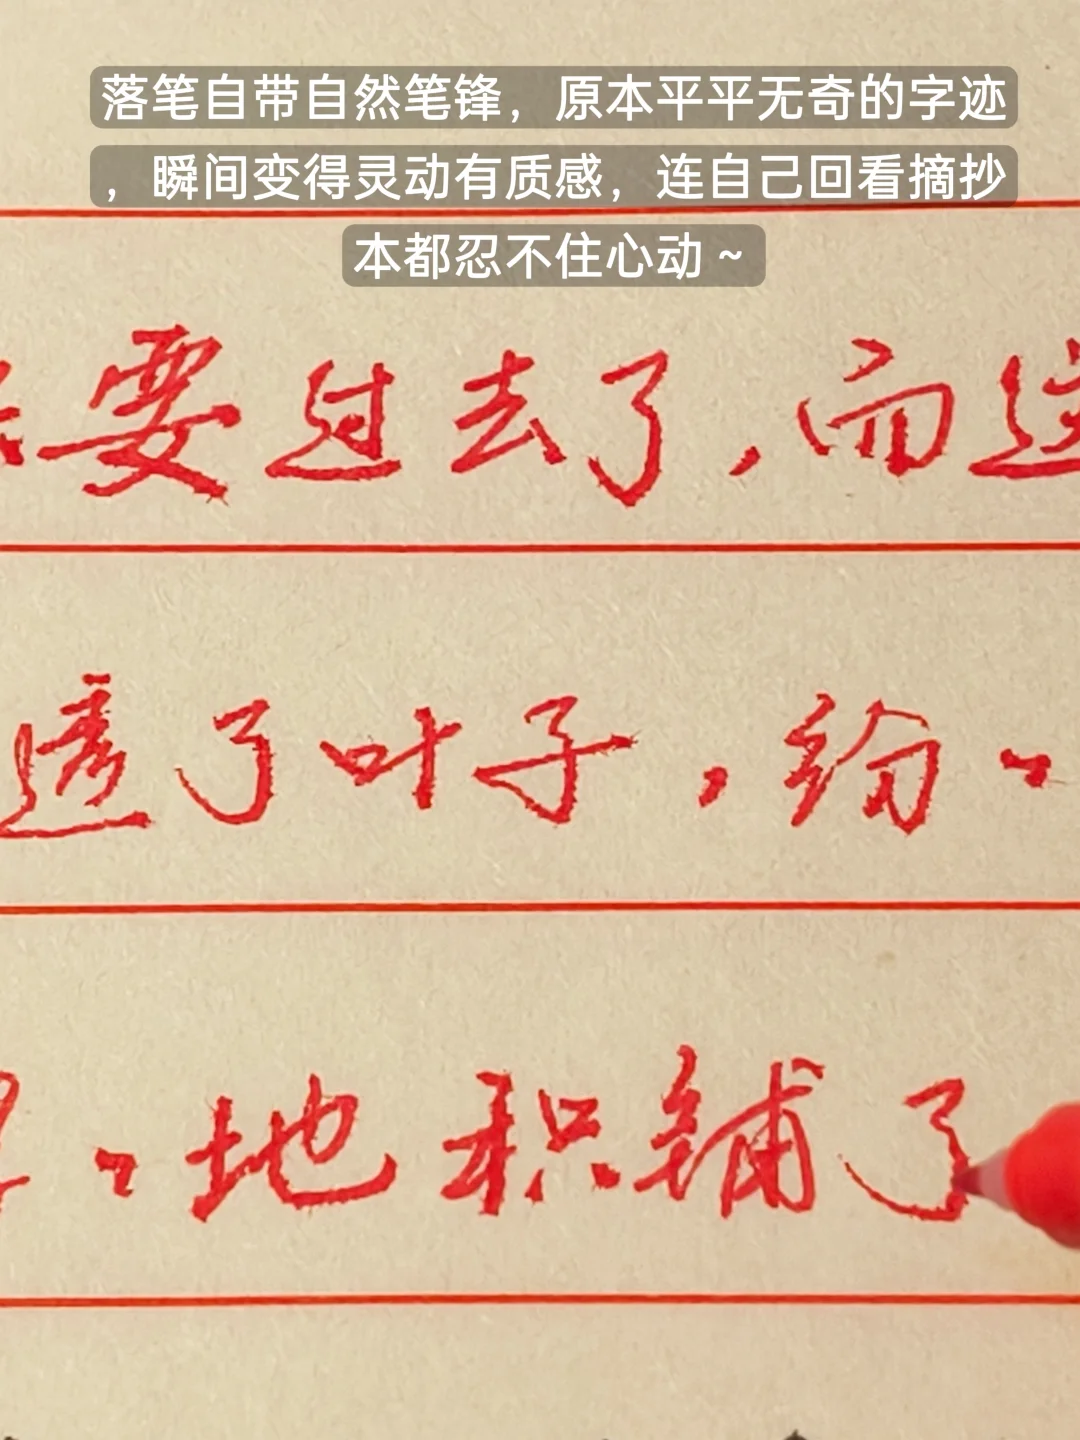 落笔自带自然笔锋，原本平平无奇的字迹
，瞬间变得灵动有质感，连自己回看摘抄
本都忍不住心动~
要过去了，而这
透了叶子，纷、
、地积铺了